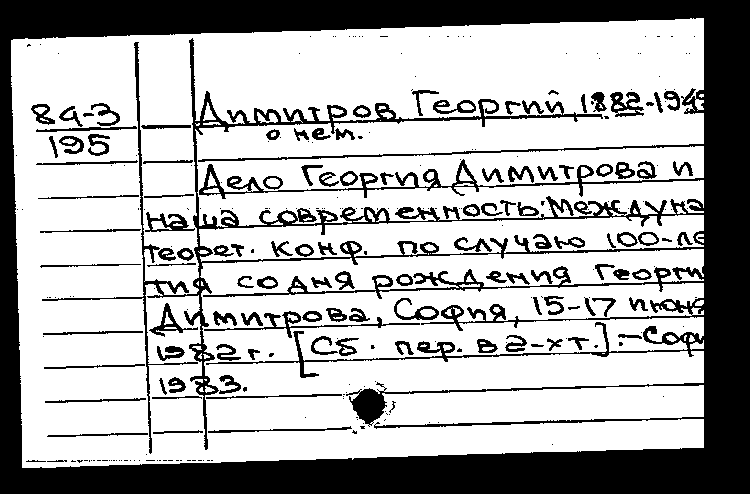 84-3
195
Димитров, Георгий, 1882-1949
о нем.
Дело Георгия Димитрова и
наша современность: Междуна
теорет. конф. по случаю 100-ле
тия со дня рождения Георги
Димитрова, София, 15-17 июня
1982 г. [Сб. пер. в 2-х т.]. - Софи
1983.